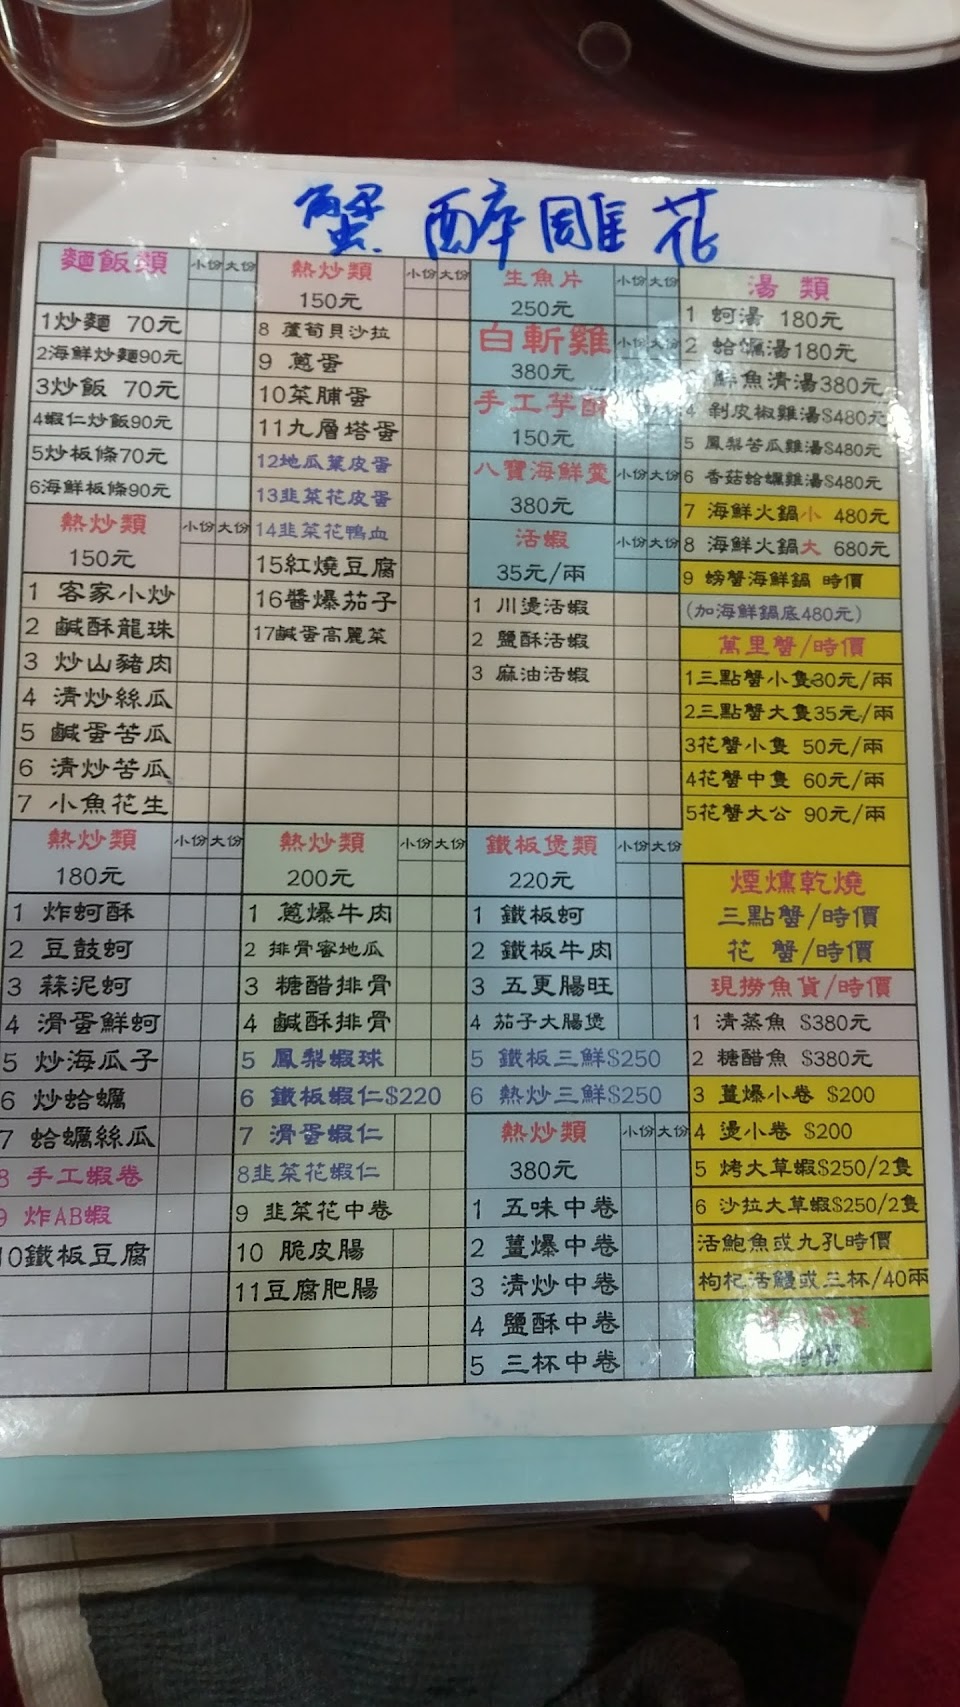 蟹 醉雕花
麵飯類 小份 大份
1炒麵 70元
2海鮮炒麵90元
3炒飯 70元
4蝦仁炒飯90元
5炒板條70元
6海鮮板條90元
熱炒類 小份 大份
150元
1 客家小炒
2 鹹酥龍珠
3 炒山豬肉
4 清炒絲瓜
5 鹹蛋苦瓜
6 清炒苦瓜
7 小魚花生
熱炒類 小份 大份
150元
8 蘆筍貝沙拉
9 蔥蛋
10菜脯蛋
11九層塔蛋
12地瓜葉皮蛋
13韭菜花皮蛋
14韭菜花鴨血
15紅燒豆腐
16醬爆茄子
17鹹蛋高麗菜
生魚片 小份 大份
250元
白斬雞 小份 大份
380元
手工芋酥
150元
八寶海鮮羹 小份 大份
380元
活蝦 小份 大份
35元/兩
1 川燙活蝦
2 鹽酥活蝦
3 麻油活蝦
湯類
1 蚵湯 180元
2 蛤蠣湯180元
鮮魚清湯380元
4 剝皮椒雞湯$480元
5 鳳梨苦瓜雞湯$480元
6 香菇蛤蠣雞湯$480元
7 海鮮火鍋小 480元
8 海鮮火鍋大 680元
9 螃蟹海鮮鍋 時價
(加海鮮鍋底480元)
萬里蟹/時價
1三點蟹小隻30元/兩
2三點蟹大隻35元/兩
3花蟹小隻 50元/兩
4花蟹中隻 60元/兩
5花蟹大公 90元/兩
煙燻乾燒
三點蟹/時價
花 蟹/時價
現撈魚貨/時價
1 清蒸魚 $380元
2 糖醋魚 $380元
3 薑爆小卷 $200
4 燙小卷 $200
5 烤大草蝦$250/2隻
6 沙拉大草蝦$250/2隻
活鮑魚或九孔時價
枸杞活鰻或三杯/40兩
熱炒類 小份 大份
180元
1 炸蚵酥
2 豆鼓蚵
3 蒜泥蚵
4 滑蛋鮮蚵
5 炒海瓜子
6 炒蛤蠣
7 蛤蠣絲瓜
8 手工蝦卷
9 炸AB蝦
10鐵板豆腐
熱炒類 小份 大份
200元
1 蔥爆牛肉
2 排骨蜜地瓜
3 糖醋排骨
4 鹹酥排骨
5 鳳梨蝦球
6 鐵板蝦仁$220
7 滑蛋蝦仁
8韭菜花蝦仁
9 韭菜花中卷
10 脆皮腸
11豆腐肥腸
鐵板煲類 小份 大份
220元
1 鐵板蚵
2 鐵板牛肉
3 五更腸旺
4 茄子大腸煲
5 鐵板三鮮$250
6 熱炒三鮮$250
熱炒類 小份 大份
380元
1 五味中卷
2 薑爆中卷
3 清炒中卷
4 鹽酥中卷
5 三杯中卷